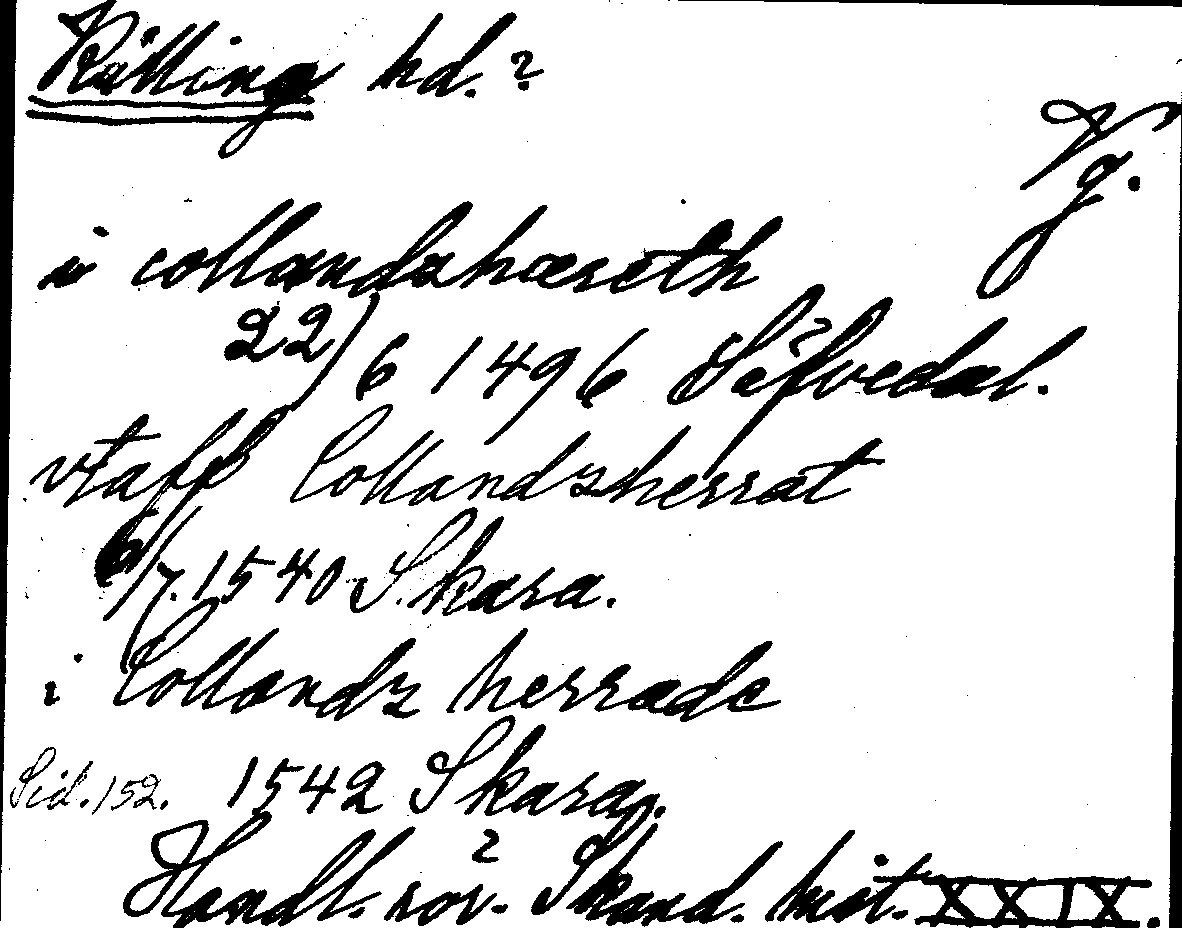 Kålling hd.?
Vg.
i collandzhæreth
22/6 1496 Säfvedal.
vtaff Collandzherrat
6/7. 1540 Skara.
i Collandz herrade
Sid. 152. 1542 Skara.
Handl. rör. Skand. hist. XXIX.